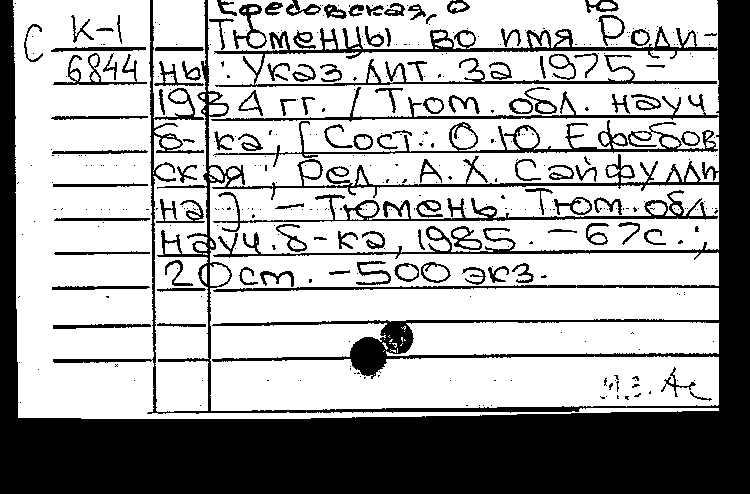 Ефебовская, О Ю
С К-1 Тюменцы во имя Роди-
6844 ны: Указ. лит. за 1975-
1984 гг. / Тюм. обл. науч.
б-ка; [Сост.: О.Ю. Ефебов-
ская; Ред.: А.Х. Сайфулли
на]. - Тюмень: Тюм. обл.
науч. б-ка, 1985. - 67с.;
20 ст. - 500 экз.